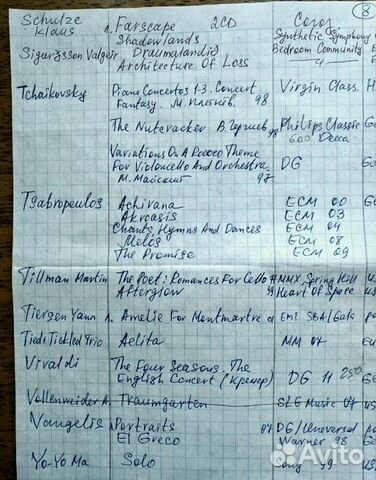 Schulze Klaus 1. Farscape 2CD 8
Shadowlands Synthetic Symphony
Sigurðsson Valgeir Draumalandið Bedroom Community
Architecture Of Loss
Tchaikovsky Piano Concertos 1-3. Concert Virgin Class.
Fantasy. М. Плетнёв. 98
The Nutcracker В. Гергиев 98 Philips Classic
600 Decca
Variations On A Rococo Theme
For Violoncello And Orchestra DG
М. Майский 97
Tsabropoulos Achirana ECM 00
Akroasis ECM 03
Chants, Hymns And Dances ECM 04
Melos ECM 08
The Promise ECM 09
Tillman Martin The Poet: Romances For Cello MMX Spring Hill
Afterglow 99 Heart Of Space
Tiersen Yann 1. Amelie For Montmartre EMI
Tied Tickled Trio Aelita MM 07
Vivaldi The Four Seasons. The
English Concert (Кремер) DG 11 250
Vollenweider A. Traumgarten SLG Music 07
Vangelis Portraits DG/Universal
El Greco Warner 98
Yo-Yo Ma Solo Sony 99
Avito